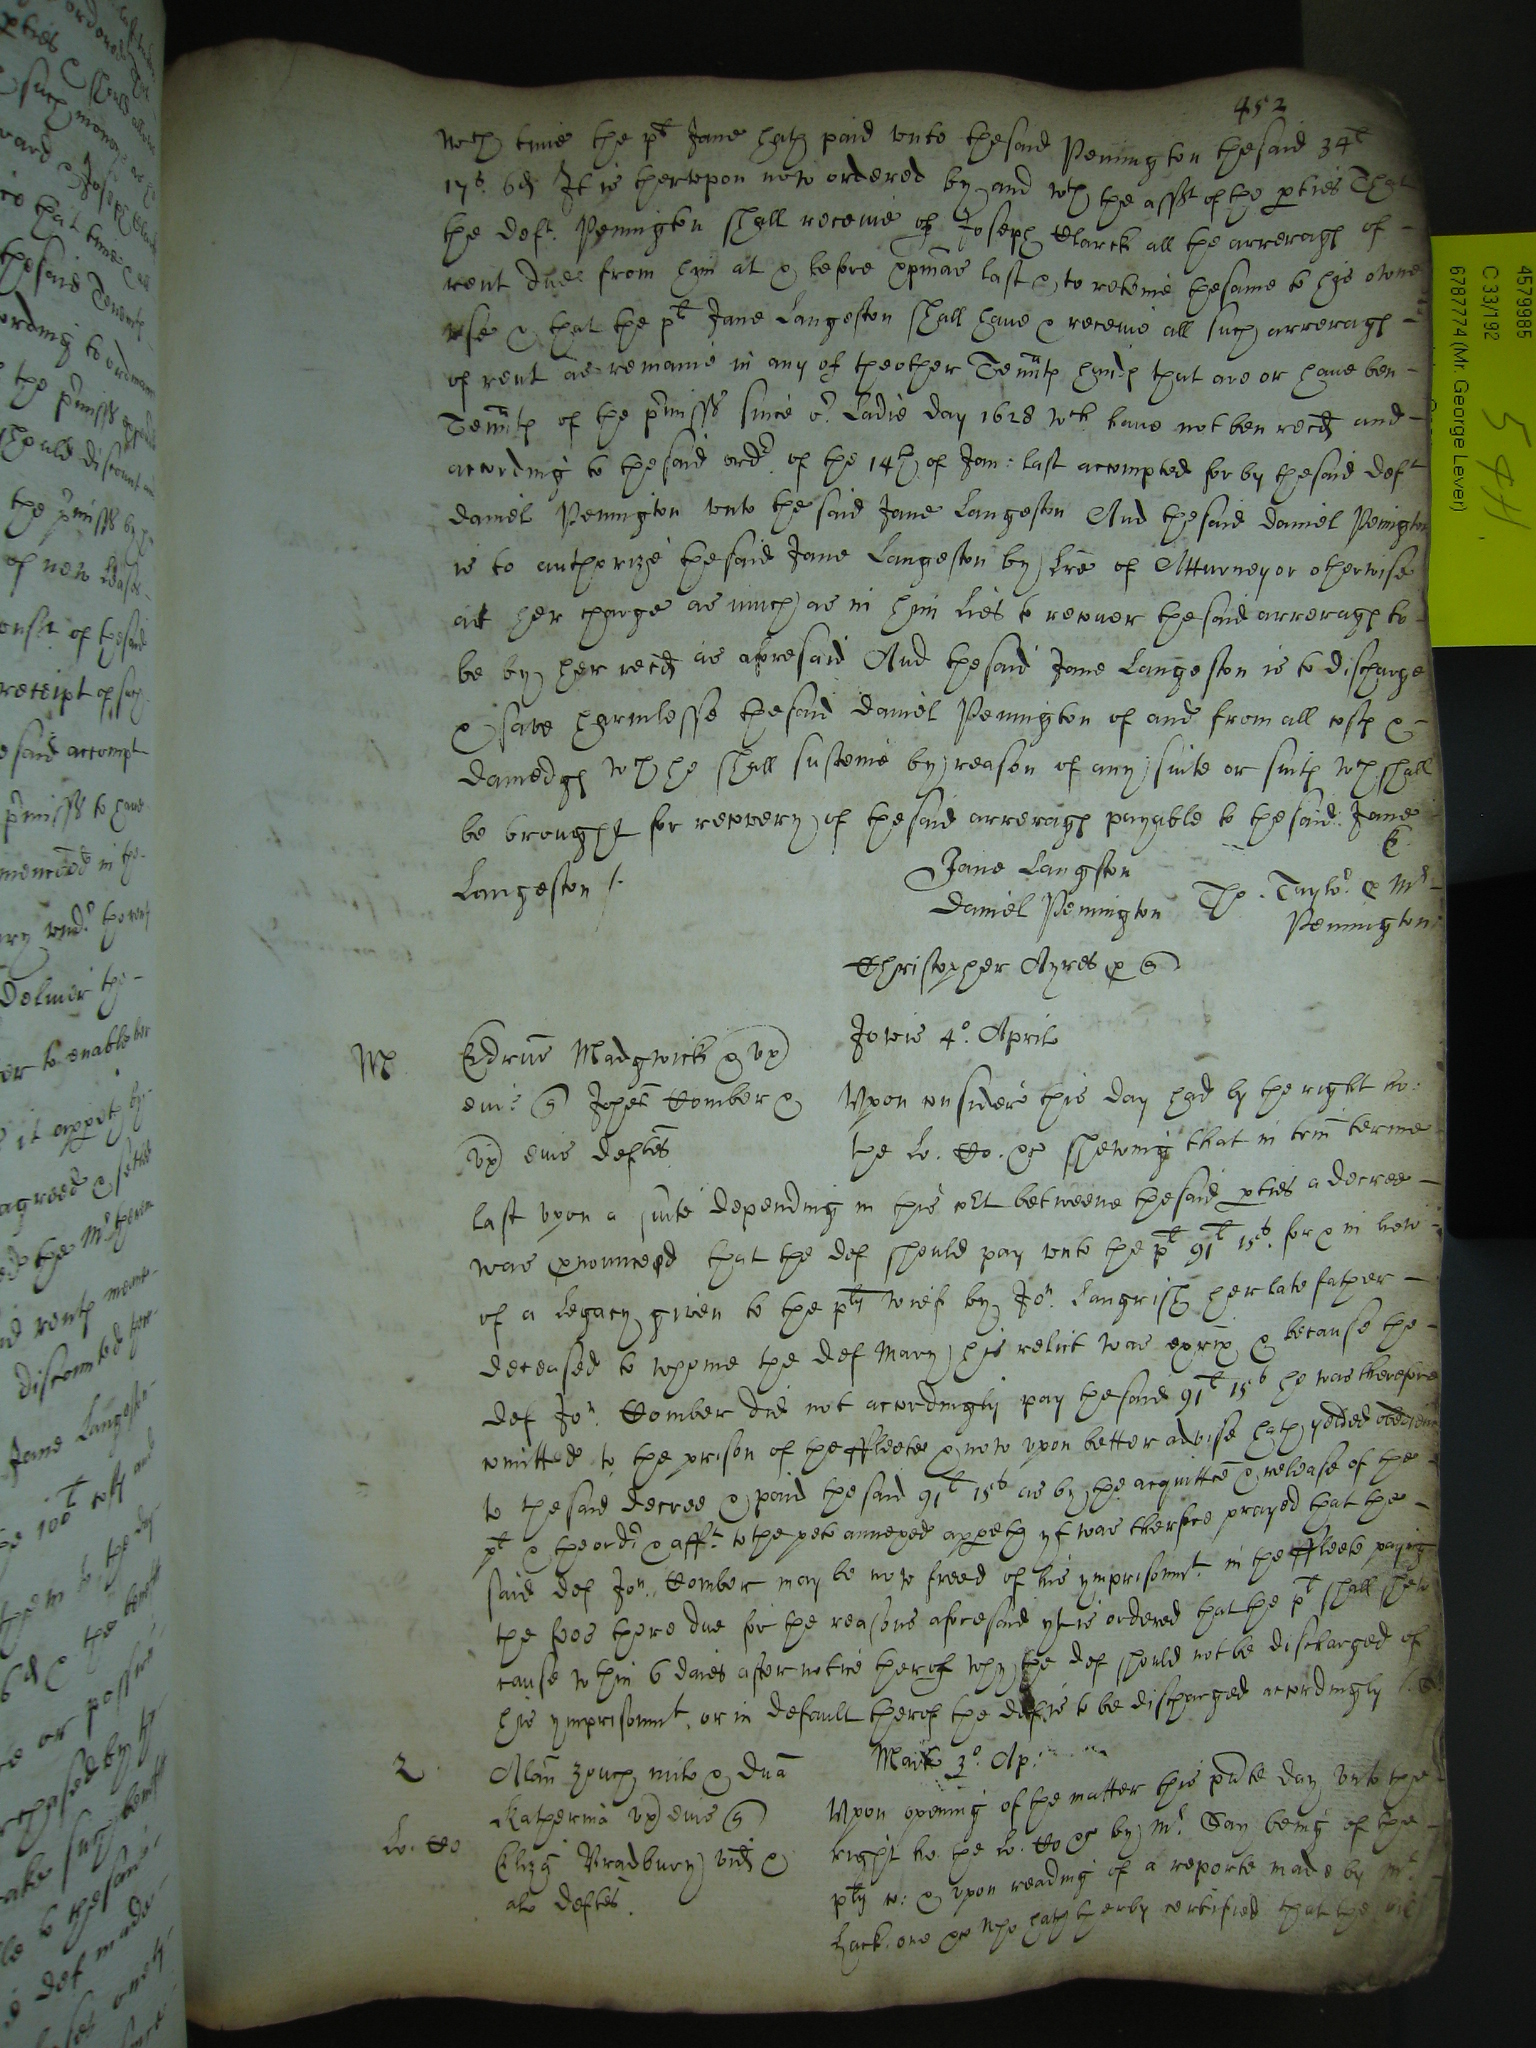 452
wch time the pt Jane hath paid vnto thesaid Penington thesaid 34l
17s. 6d It is therevpon now ordered by and wth the asst of the pties That
the deft. Penington shall receive of Joseph Clarck all the arreragf of
rent due from him at & before xpmas last & to reteine thesame to his owne
vse & that the pt Jane Langeston shall have & receive all such arreragf
of rent as remaine in any of theother Tenntf handf that are or have ben
Tenntf of the pmisss since or. Ladie day 1628 wch have not ben recd and
according to thesaid ordr. of the 14th of Jan: last accompted for by thesaid deft
daniel Penington vnto the said Jane Langeston And thesaid daniel Penington
is to authorize thesaid Jane Langeston by Lre of Atturney or otherwise
att her charge as much as in him lies to recover thesaid arreragf to
be by her recd as aforesaid And thesaid Jane Langeston is to discharge
& save harmlesse thesaid daniel Penington of and from all costf &
damedgf wch he shall susteine by reason of any suite or suitf wch shall
be brought for recovery of thesaid arreragf payable to thesaid Jane
Langeston /.
Jane Langston
daniel Penington
Tho. Taylor. & Mr
Penington
Christopher Ayres
Jovis 4o. Aprilis
Edrus Madgwick & vx
eius Johes Comber &
vx eius deftes
Vpon consideré this day had by the right ho:
the Lo. Co. &c shewing that in trin terme
last vpon a suite depending in this cort betweene thesaid pties a decree
was pnounced that the def should pay vnto the pt 91l 15s. for & in liew
of a Legacy given to the pltf wief by Jon. Langrish her late father
deceased to whome the def Mary his relict was exrix & because the
def Jon. Comber did not accordingly pay thesaid 91l 15s he was therefore
comitted to the prison of the ffleete & now vpon better advise hath yeilded obedience
to thesaid decree & paid thesaid 91l 15s as by the acquittce & release of the
pt & the ordr & afft. to the peto annexed appeth yt was therfore prayed that the
said def Jon. Comber may be now freed of his ymprisonmt. in the ffleete paying
the fees there due for the reasons aforesaid yt is ordered that the pt shall shew
cause wthin 6 daies after notice therof why the def should not be discharged of
his ymprisonmt. or in default therof the def is to be discharged accordingly
Alan zouch milo & dna
Katherina vx eius
Eliza Bradbury vid &
alo deftes.
Lo. Co
Martis 3o. Ap:
Vpon opening of the matter this pnte day vnto the
right ho the Lo. Co &c by Mr. Say being of the
pltf co: & vpon reading of a reporte made by Mr.
one &c who hath therby certified that the
4579985
C 33/192
6787774 (Mr. George Lever)